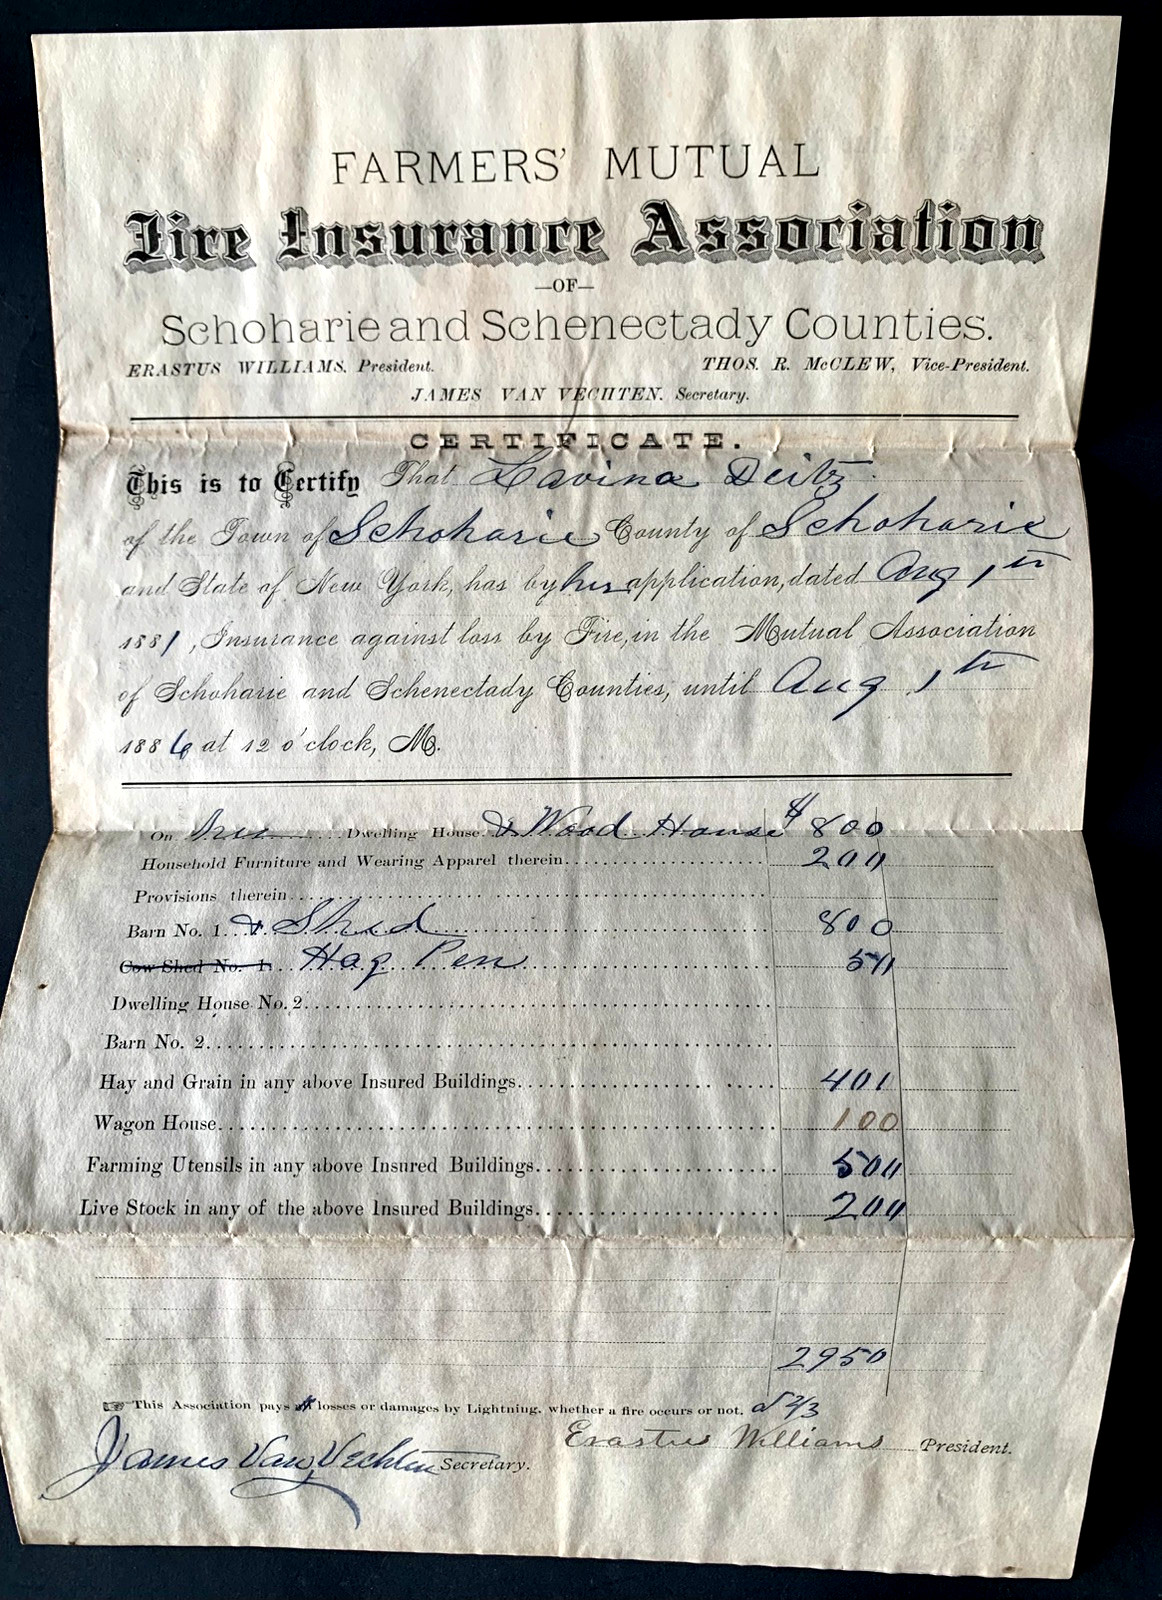 FARMERS' MUTUAL
Fire Insurance Association
—OF—
Schoharie and Schenectady Counties.
ERASTUS WILLIAMS, President. THOS. R. McCLEW, Vice-President.
JAMES VAN VECHTEN, Secretary.
CERTIFICATE.
This is to Certify That Lavina Deitz
of the Town of Schoharie County of Schoharie
and State of New York, has by her application, dated Aug 1th
1881, Insurance against loss by Fire, in the Mutual Association
of Schoharie and Schenectady Counties, until Aug 1th
1886 at 12 o'clock, M.
On Dwelling House & Wood House $ 800
Household Furniture and Wearing Apparel therein 200
Provisions therein
Barn No. 1 & Shed 800
Cow Shed No. 1. Hog Pen 50
Dwelling House No. 2
Barn No. 2
Hay and Grain in any above Insured Buildings 400
Wagon House 100
Farming Utensils in any above Insured Buildings
Live Stock in any of the above Insured Buildings 200
2950
☞ This Association pays losses or damages by Lightning, whether a fire occurs or not. of 2/3
James Van Vechten Secretary. Erastus Williams President.